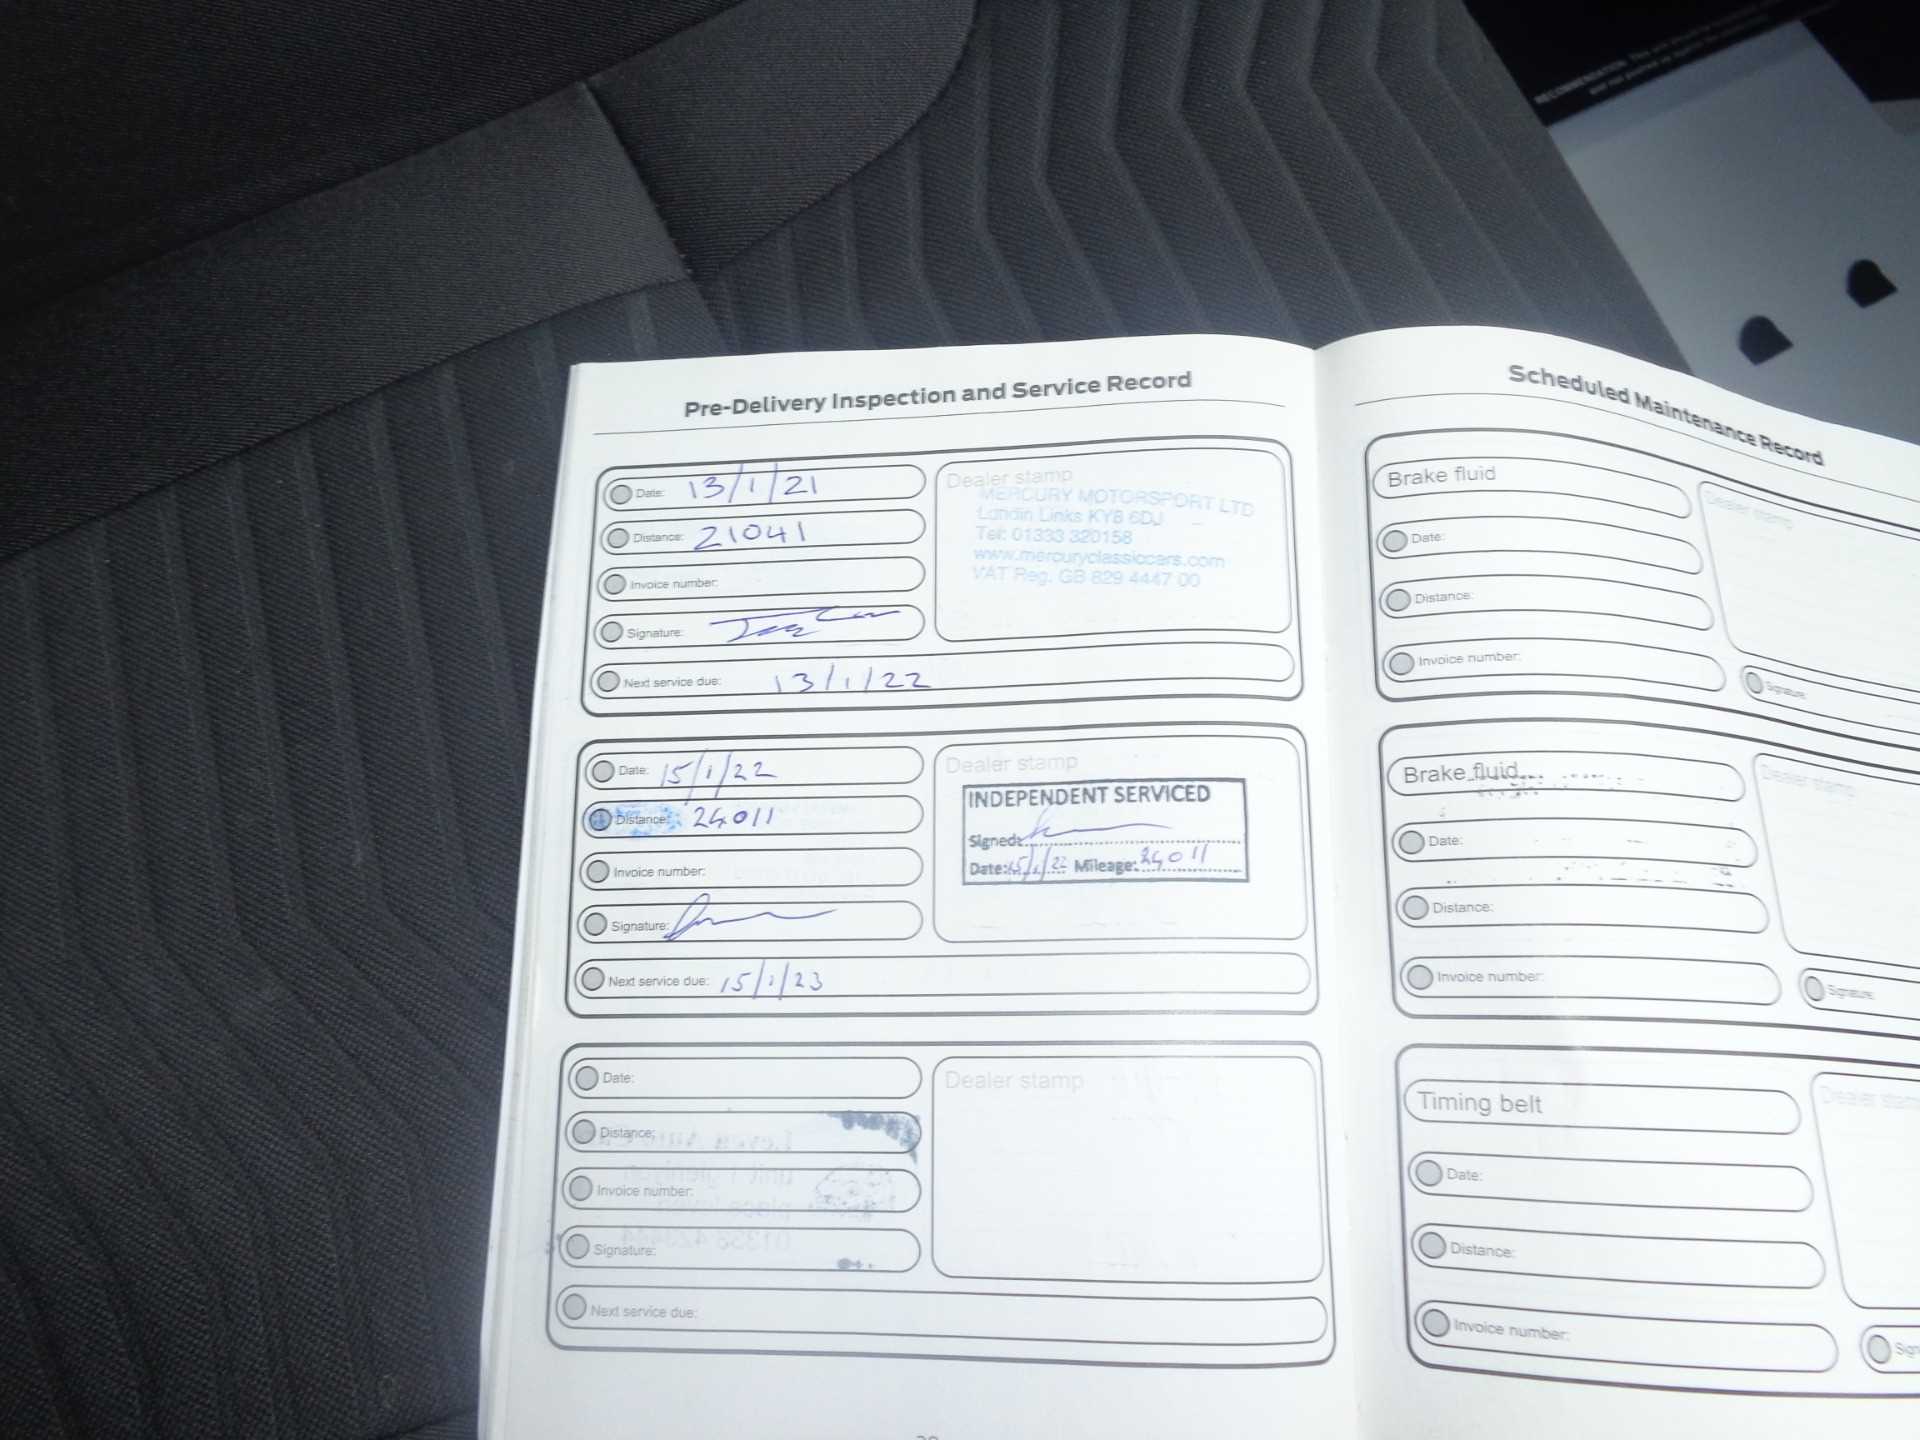 RECOMMENDATION: This
Pre-Delivery Inspection and Service Record
Date: 13/1/21
Distance: 21041
Invoice number:
Signature:
Next service due: 13/1/22
Dealer stamp
MERCURY MOTORSPORT LTD
Lundin Links KY8 6DJ
Tel: 01333 320158
www.mercuryclassiccars.com
VAT Reg. GB 829 4447 00
Date: 15/1/22
Distance: 24011
Invoice number:
Signature:
Next service due: 15/1/23
Dealer stamp
INDEPENDENT SERVICED
Signed:
Date: 15/1/22 Mileage: 24011
Date:
Distance:
Invoice number:
Signature:
Next service due:
Dealer stamp
Scheduled Maintenance Record
Brake fluid
Date:
Distance:
Invoice number:
Dealer stamp
Signature:
Brake fluid
Date:
Distance:
Invoice number:
Dealer stamp
Signature:
Timing belt
Date:
Distance:
Invoice number:
Dealer stamp
Sign